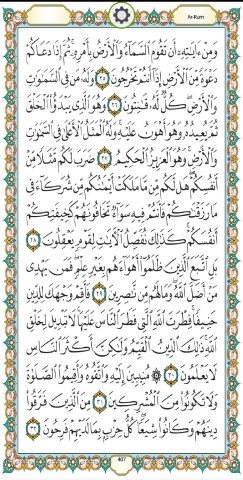 Ar-Rum
وَمِنْ ءَايَٰتِهِۦٓ أَن تَقُومَ ٱلسَّمَآءُ وَٱلْأَرْضُ بِأَمْرِهِۦ ۚ ثُمَّ إِذَا دَعَاكُمْ
دَعْوَةً مِّنَ ٱلْأَرْضِ إِذَآ أَنتُمْ تَخْرُجُونَ ٢٥ وَلَهُۥ مَن فِى ٱلسَّمَٰوَٰتِ
وَٱلْأَرْضِ ۖ كُلٌّ لَّهُۥ قَٰنِتُونَ ٢٦ وَهُوَ ٱلَّذِى يَبْدَؤُا۟ ٱلْخَلْقَ
ثُمَّ يُعِيدُهُۥ وَهُوَ أَهْوَنُ عَلَيْهِ ۚ وَلَهُ ٱلْمَثَلُ ٱلْأَعْلَىٰ فِى ٱلسَّمَٰوَٰتِ
وَٱلْأَرْضِ ۚ وَهُوَ ٱلْعَزِيزُ ٱلْحَكِيمُ ٢٧ ضَرَبَ لَكُم مَّثَلًا مِّنْ
أَنفُسِكُمْ ۖ هَل لَّكُم مِّن مَّا مَلَكَتْ أَيْمَٰنُكُم مِّن شُرَكَآءَ فِى
مَا رَزَقْنَٰكُمْ فَأَنتُمْ فِيهِ سَوَآءٌ تَخَافُونَهُمْ كَخِيفَتِكُمْ
أَنفُسَكُمْ ۚ كَذَٰلِكَ نُفَصِّلُ ٱلْءَايَٰتِ لِقَوْمٍ يَعْقِلُونَ ٢٨
بَلِ ٱتَّبَعَ ٱلَّذِينَ ظَلَمُوٓا۟ أَهْوَآءَهُم بِغَيْرِ عِلْمٍ ۖ فَمَن يَهْدِى
مَنْ أَضَلَّ ٱللَّهُ ۖ وَمَا لَهُم مِّن نَّٰصِرِينَ ٢٩ فَأَقِمْ وَجْهَكَ لِلدِّينِ
حَنِيفًا ۚ فِطْرَتَ ٱللَّهِ ٱلَّتِى فَطَرَ ٱلنَّاسَ عَلَيْهَا ۚ لَا تَبْدِيلَ لِخَلْقِ
ٱللَّهِ ۚ ذَٰلِكَ ٱلدِّينُ ٱلْقَيِّمُ وَلَٰكِنَّ أَكْثَرَ ٱلنَّاسِ
لَا يَعْلَمُونَ ٣٠ ۞ مُنِيبِينَ إِلَيْهِ وَٱتَّقُوهُ وَأَقِيمُوا۟ ٱلصَّلَوٰةَ
وَلَا تَكُونُوا۟ مِنَ ٱلْمُشْرِكِينَ ٣١ مِنَ ٱلَّذِينَ فَرَّقُوا۟
دِينَهُمْ وَكَانُوا۟ شِيَعًا ۖ كُلُّ حِزْبٍۭ بِمَا لَدَيْهِمْ فَرِحُونَ ٣٢
407